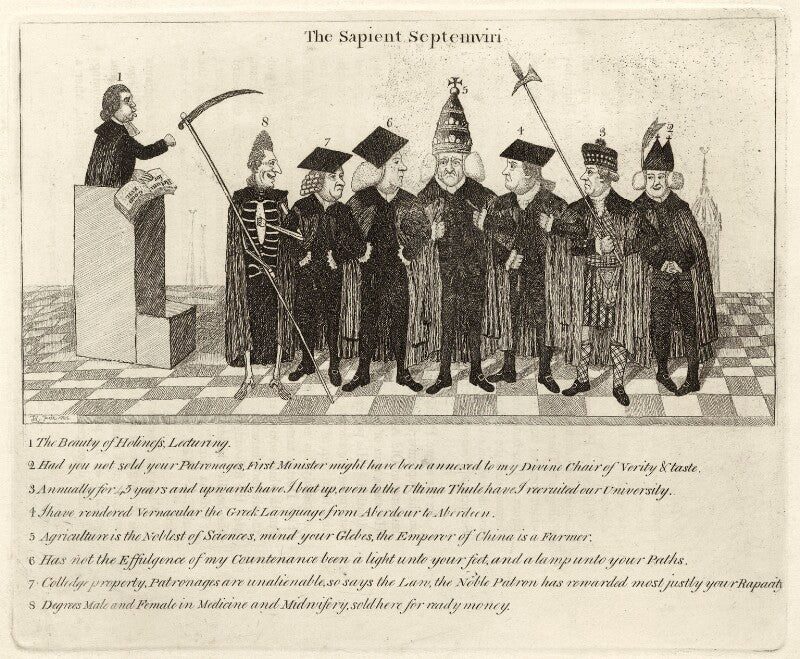 The Sapient Septemviri
1
8
7
6
5
4
3
2
1 The Beauty of Holiness, Lecturing.
2 Had you not sold your Patronages, First Minister might have been annexed to my Divine Chair of Verity & taste.
3 Annually for 43 years and upwards have I beat up, even to the Ultima Thule have I recruited our University.
4 I have rendered Vernacular the Greek Language from Aberdour to Aberdeen.
5 Agriculture is the Noblest of Sciences, mind your Glebes, the Emperor of China is a Farmer.
6 Has not the Effulgence of my Countenance been a light unto your feet, and a lamp unto your Paths.
7 Colledge property, Patronages are unalienable, so says the Law, the Noble Patron has rewarded most justly your Rapacity
8 Degrees Male and Female in Medicine and Midwifery, sold here for ready money.